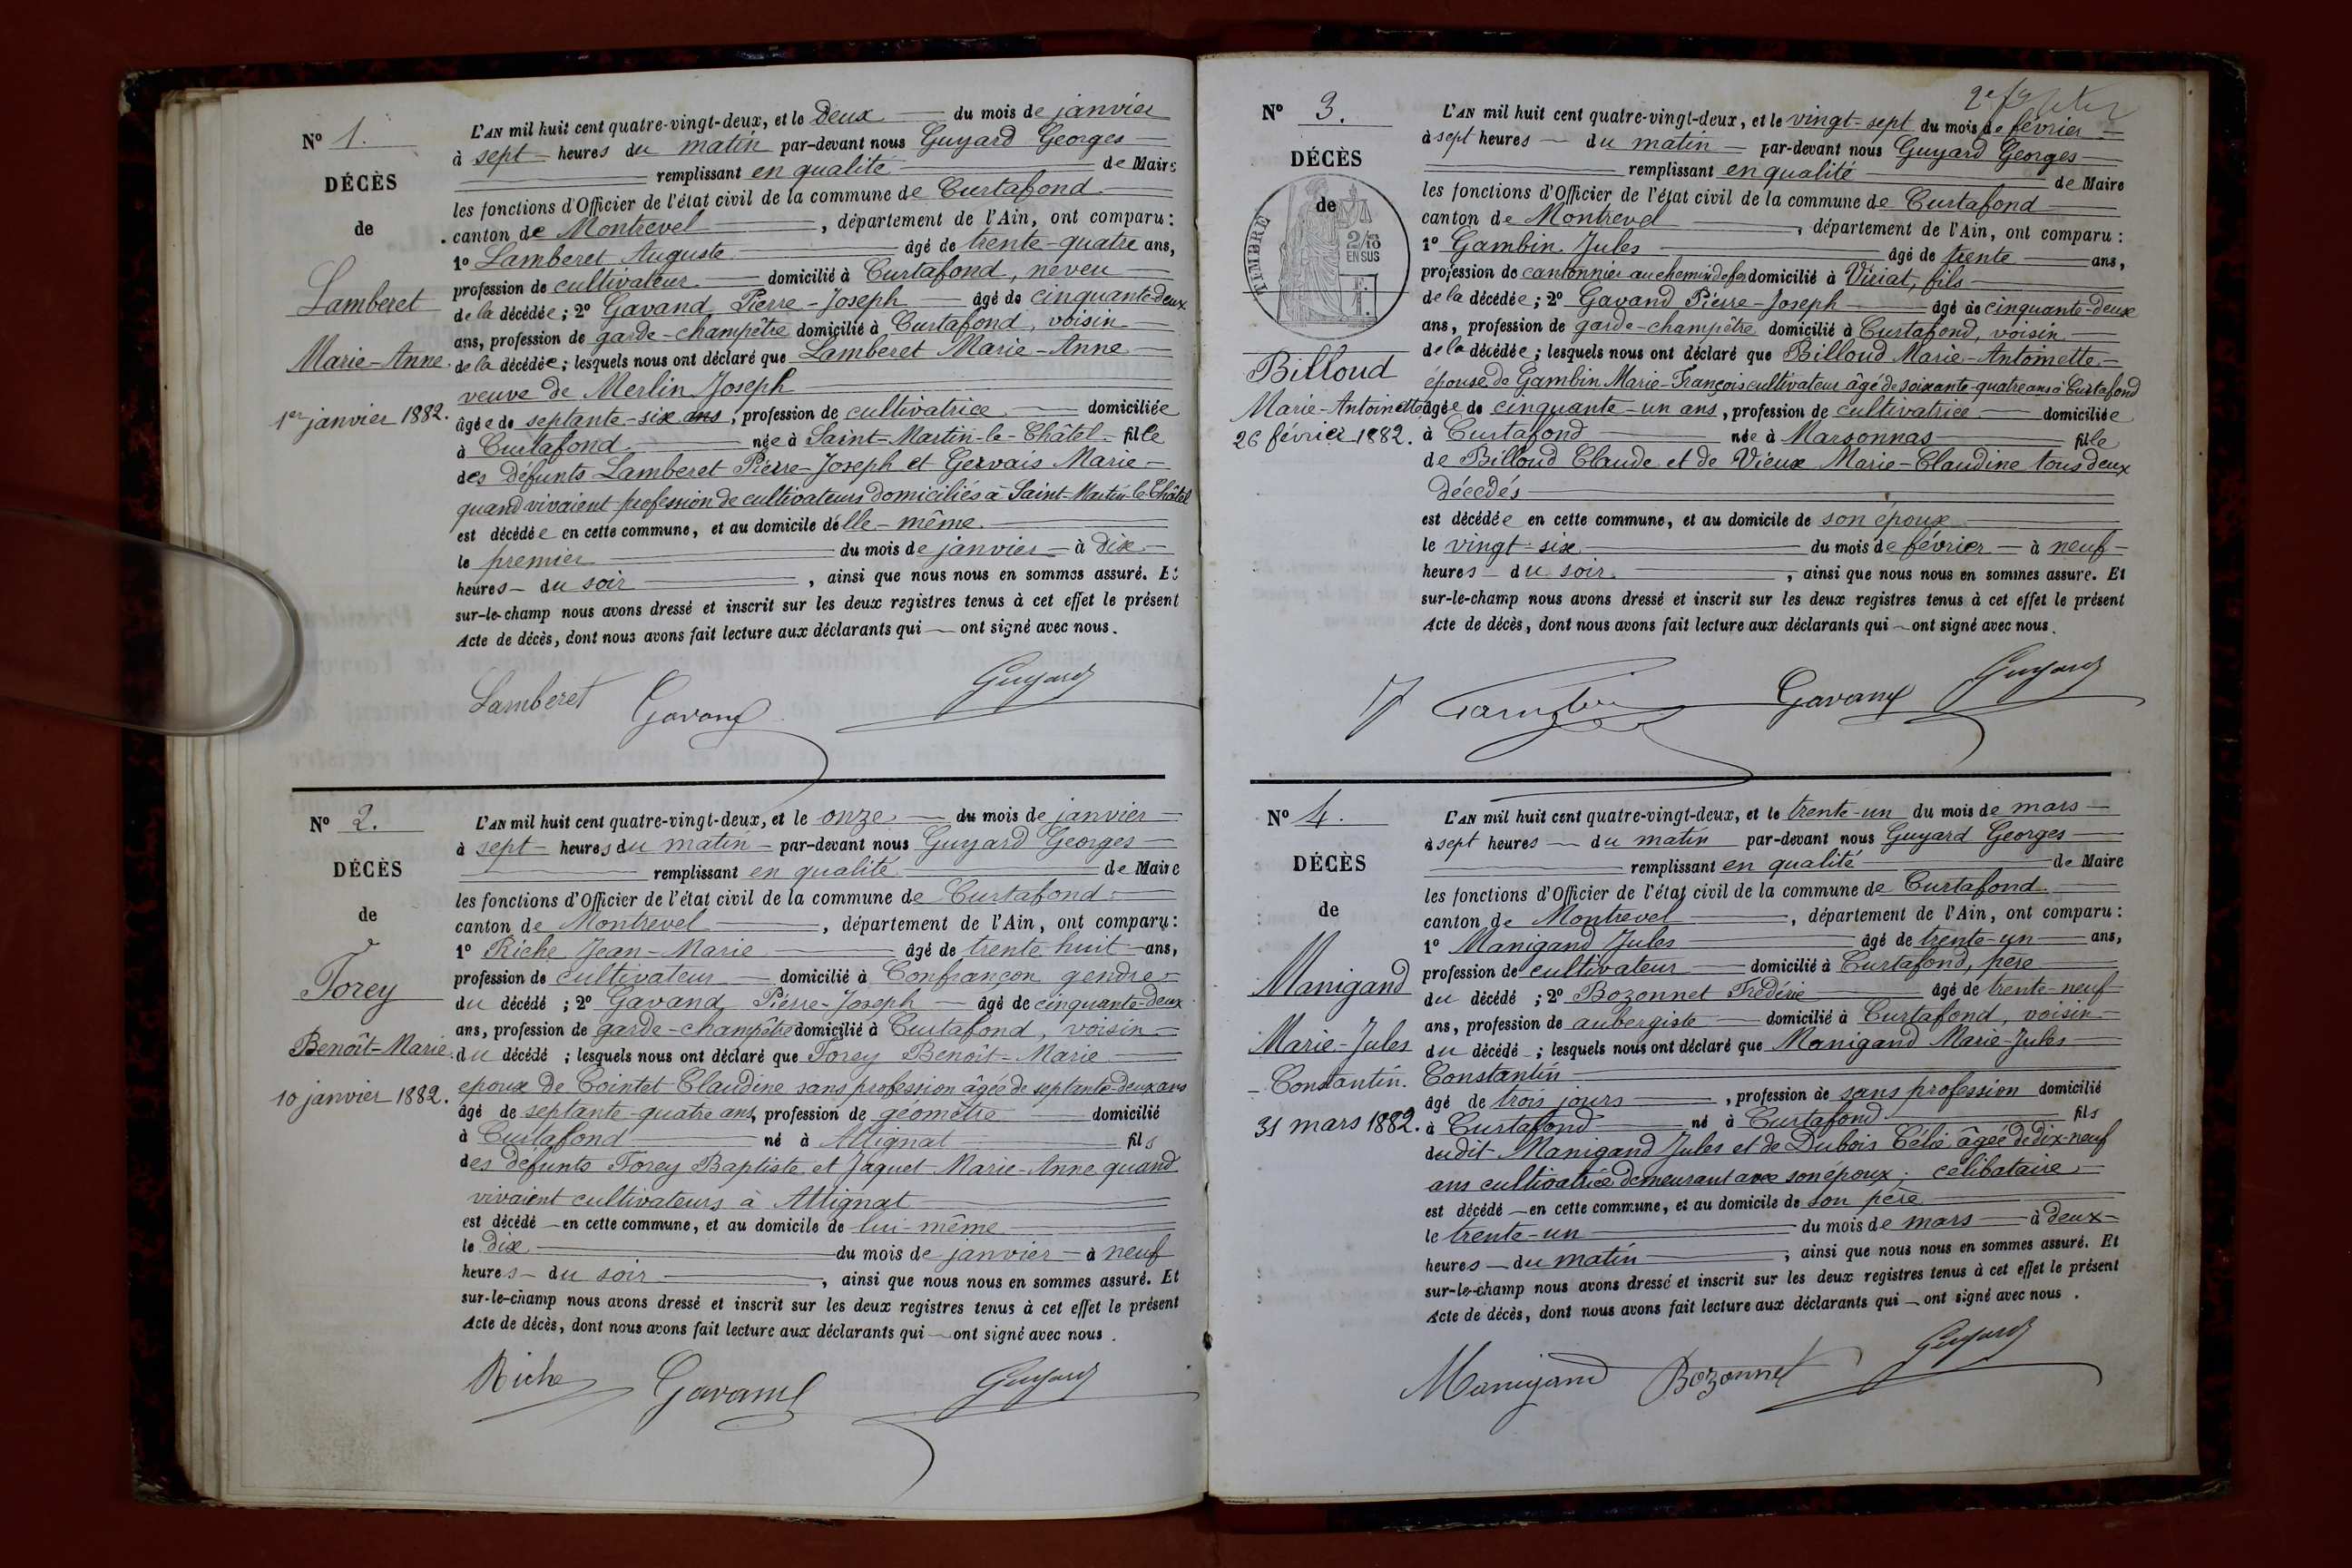 N° 1.
DÉCÈS
de
Lamberet
Marie-Anne.
1er janvier 1882.
L'AN mil huit cent quatre-vingt-deux, et le Deux du mois de janvier
à sept heures du matin par-devant nous Guyard Georges
remplissant en qualité de Maire
les fonctions d'Officier de l'état civil de la commune de Curtafond
canton de Montrevel, département de l'Ain, ont comparu :
1° Lamberet Auguste âgé de trente-quatre ans,
profession de cultivateur domicilié à Curtafond, neveu
de la décédée ; 2° Gavand Pierre-Joseph âgé de cinquante-deux
ans, profession de garde-champêtre domicilié à Curtafond, voisin
de la décédée ; lesquels nous ont déclaré que Lamberet Marie-Anne
veuve de Merlin Joseph
âgée de septante-six ans, profession de cultivatrice domiciliée
à Curtafond née à Saint-Martin-le-Châtel fille
des défunts Lamberet Pierre-Joseph et Gervais Marie
quand vivaient profession de cultivateurs domiciliés à Saint-Martin-le-Châtel
est décédée en cette commune, et au domicile d'elle-même.
le premier du mois de janvier à dix
heures du soir, ainsi que nous nous en sommes assuré. Et
sur-le-champ nous avons dressé et inscrit sur les deux registres tenus à cet effet le présent
Acte de décès, dont nous avons fait lecture aux déclarants qui ont signé avec nous.
Lamberet Gavand Guyard
N° 2.
DÉCÈS
de
Forey
Benoît-Marie.
10 janvier 1882.
L'AN mil huit cent quatre-vingt-deux, et le onze du mois de janvier
à sept heures du matin par-devant nous Guyard Georges
remplissant en qualité de Maire
les fonctions d'Officier de l'état civil de la commune de Curtafond
canton de Montrevel, département de l'Ain, ont comparu :
1° Riche Jean-Marie âgé de trente huit ans,
profession de cultivateur domicilié à Confrançon gendre
du décédé ; 2° Gavand Pierre-Joseph âgé de cinquante-deux
ans, profession de garde-champêtre domicilié à Curtafond, voisin
du décédé ; lesquels nous ont déclaré que Forey Benoît-Marie
epoux de Cointet Claudine sans profession âgée de septante-deux ans
âgé de septante-quatre ans, profession de géomètre domicilié
à Curtafond né à Attignat fils
des défunts Forey Baptiste et Jaquet Marie-Anne quand
vivaient cultivateurs à Attignat
est décédé en cette commune, et au domicile de lui-même
le dix du mois de janvier à neuf
heures du soir, ainsi que nous nous en sommes assuré. Et
sur-le-champ nous avons dressé et inscrit sur les deux registres tenus à cet effet le présent
Acte de décès, dont nous avons fait lecture aux déclarants qui ont signé avec nous.
Riche Gavand Guyard
N° 3.
DÉCÈS
de
TIMBRE
2/10
EN SUS
Billoud
Marie-Antoinette
26 février 1882.
L'AN mil huit cent quatre-vingt-deux, et le vingt-sept du mois de février
à sept heures du matin par-devant nous Guyard Georges
remplissant en qualité de Maire
les fonctions d'Officier de l'état civil de la commune de Curtafond
canton de Montrevel, département de l'Ain, ont comparu :
1° Gambin Jules âgé de trente ans,
profession de cantonnier au chemin de fer domicilié à Viriat, fils
de la décédée ; 2° Gavand Pierre-Joseph âgé de cinquante-deux
ans, profession de garde-champêtre domicilié à Curtafond, voisin
de la décédée ; lesquels nous ont déclaré que Billoud Marie-Antoinette
épouse de Gambin Marie-François cultivateur âgé de soixante-quatre ans à Curtafond
âgée de cinquante-un ans, profession de cultivatrice domiciliée
à Curtafond née à Marsonnas fille
de Billoud Claude et de Vieux Marie-Claudine tous deux
décédés
est décédée en cette commune, et au domicile de son époux
le vingt-six du mois de février à neuf
heures du soir, ainsi que nous nous en sommes assuré. Et
sur-le-champ nous avons dressé et inscrit sur les deux registres tenus à cet effet le présent
Acte de décès, dont nous avons fait lecture aux déclarants qui ont signé avec nous.
J Gambin Gavand Guyard
N° 4.
DÉCÈS
de
Manigand
Marie-Jules
Constantin.
31 mars 1882.
L'AN mil huit cent quatre-vingt-deux, et le trente-un du mois de mars
à sept heures du matin par-devant nous Guyard Georges
remplissant en qualité de Maire
les fonctions d'Officier de l'état civil de la commune de Curtafond
canton de Montrevel, département de l'Ain, ont comparu :
1° Manigand Jules âgé de trente-un ans,
profession de cultivateur domicilié à Curtafond, père
du décédé ; 2° Bozonnet Frédéric âgé de trente-neuf
ans, profession de aubergiste domicilié à Curtafond, voisin
du décédé ; lesquels nous ont déclaré que Manigand Marie-Jules
Constantin
âgé de trois jours, profession de sans profession domicilié
à Curtafond né à Curtafond fils
dudit Manigand Jules et de Dubois Célie âgée de dix-neuf
ans cultivatrice demeurant avec son époux ; célibataire
est décédé en cette commune, et au domicile de son père
le trente-un du mois de mars à deux
heures du matin, ainsi que nous nous en sommes assuré. Et
sur-le-champ nous avons dressé et inscrit sur les deux registres tenus à cet effet le présent
Acte de décès, dont nous avons fait lecture aux déclarants qui ont signé avec nous.
Manigand Bozonnet Guyard